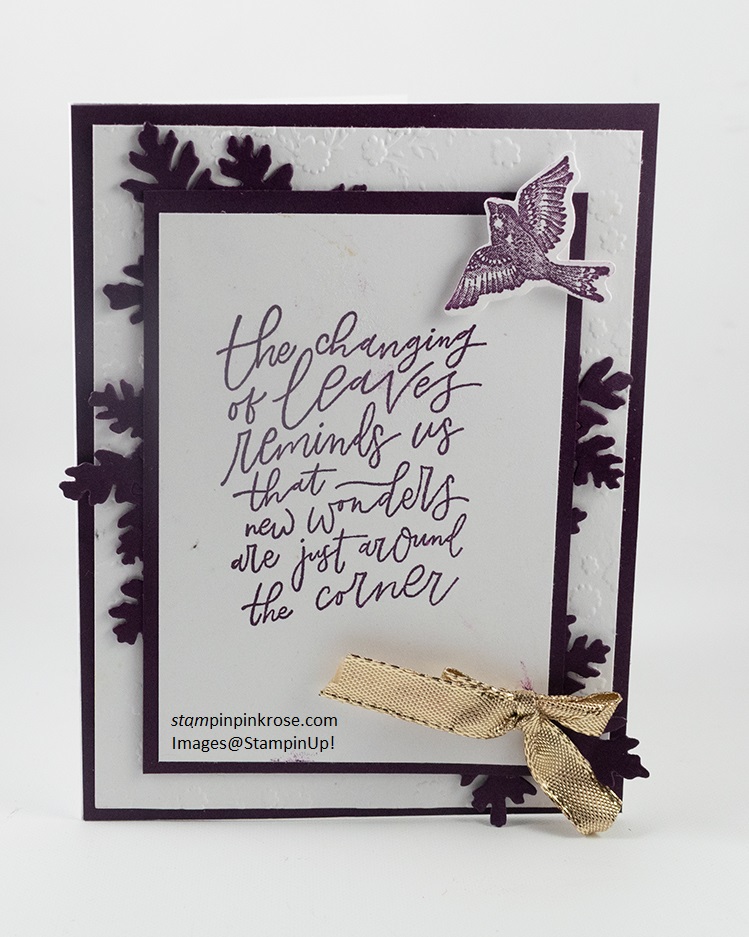 the changing
of leaves
reminds us
that wonders
new
are just around
the corner
stampinpinkrose.com
Images@StampinUp!